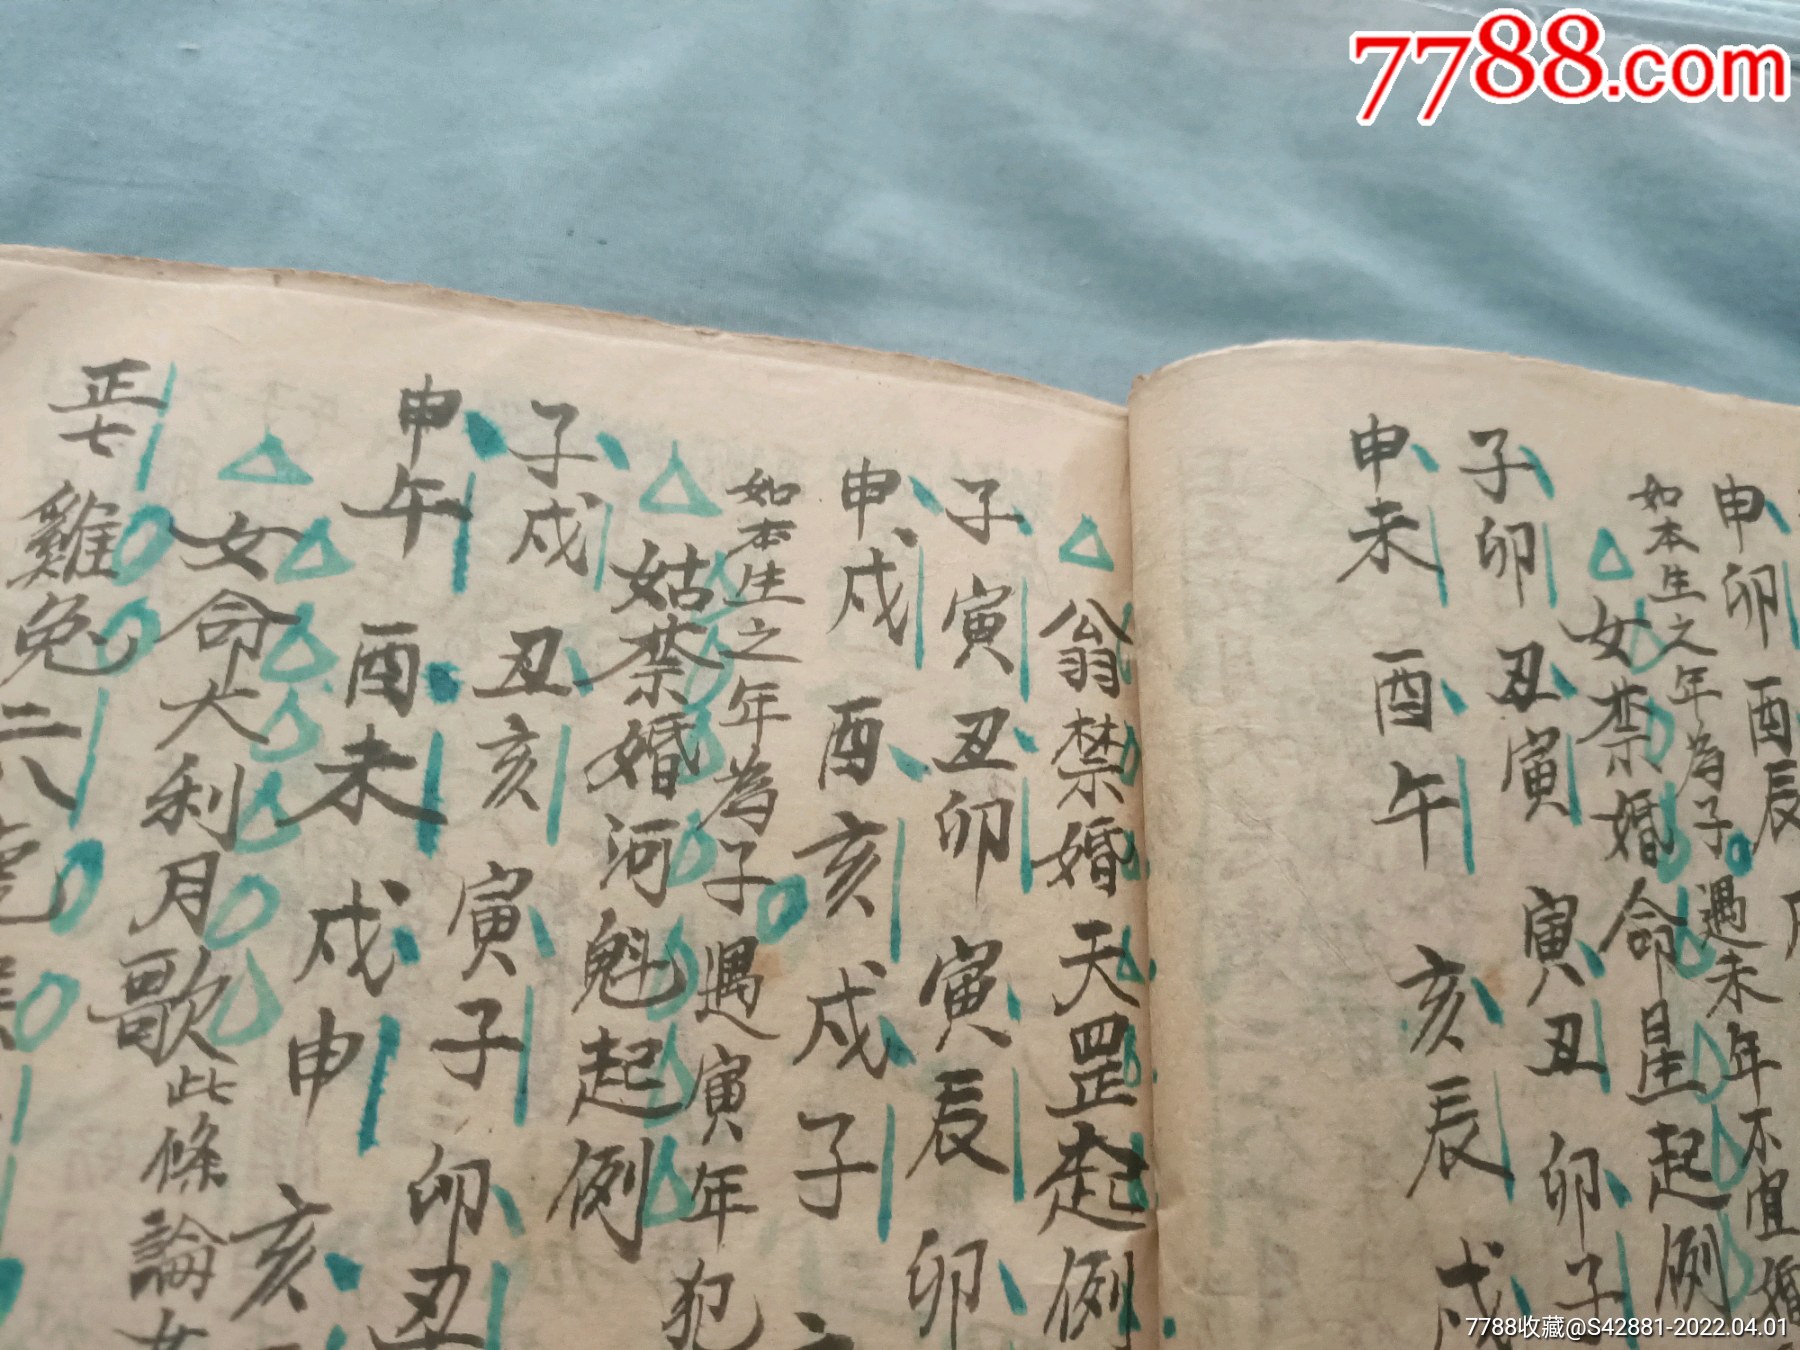 7788.com
申卯 酉辰
如本生之年為子遇未年不宜婚
女禁婚命星起例
子卯 丑寅 寅丑 卯子
申未 酉午 亥辰 戌
翁禁婚天罡起例
子寅 丑卯 寅辰 卯
申戌 酉亥 戌子
如本生之年為子遇寅年犯
姑禁婚河魁起例
子戌 丑亥 寅子 卯丑
申午 酉未 戌申 亥
女命大利月歌此條論女
正七 雞兔 二八
7788收藏@S42881-2022.04.01